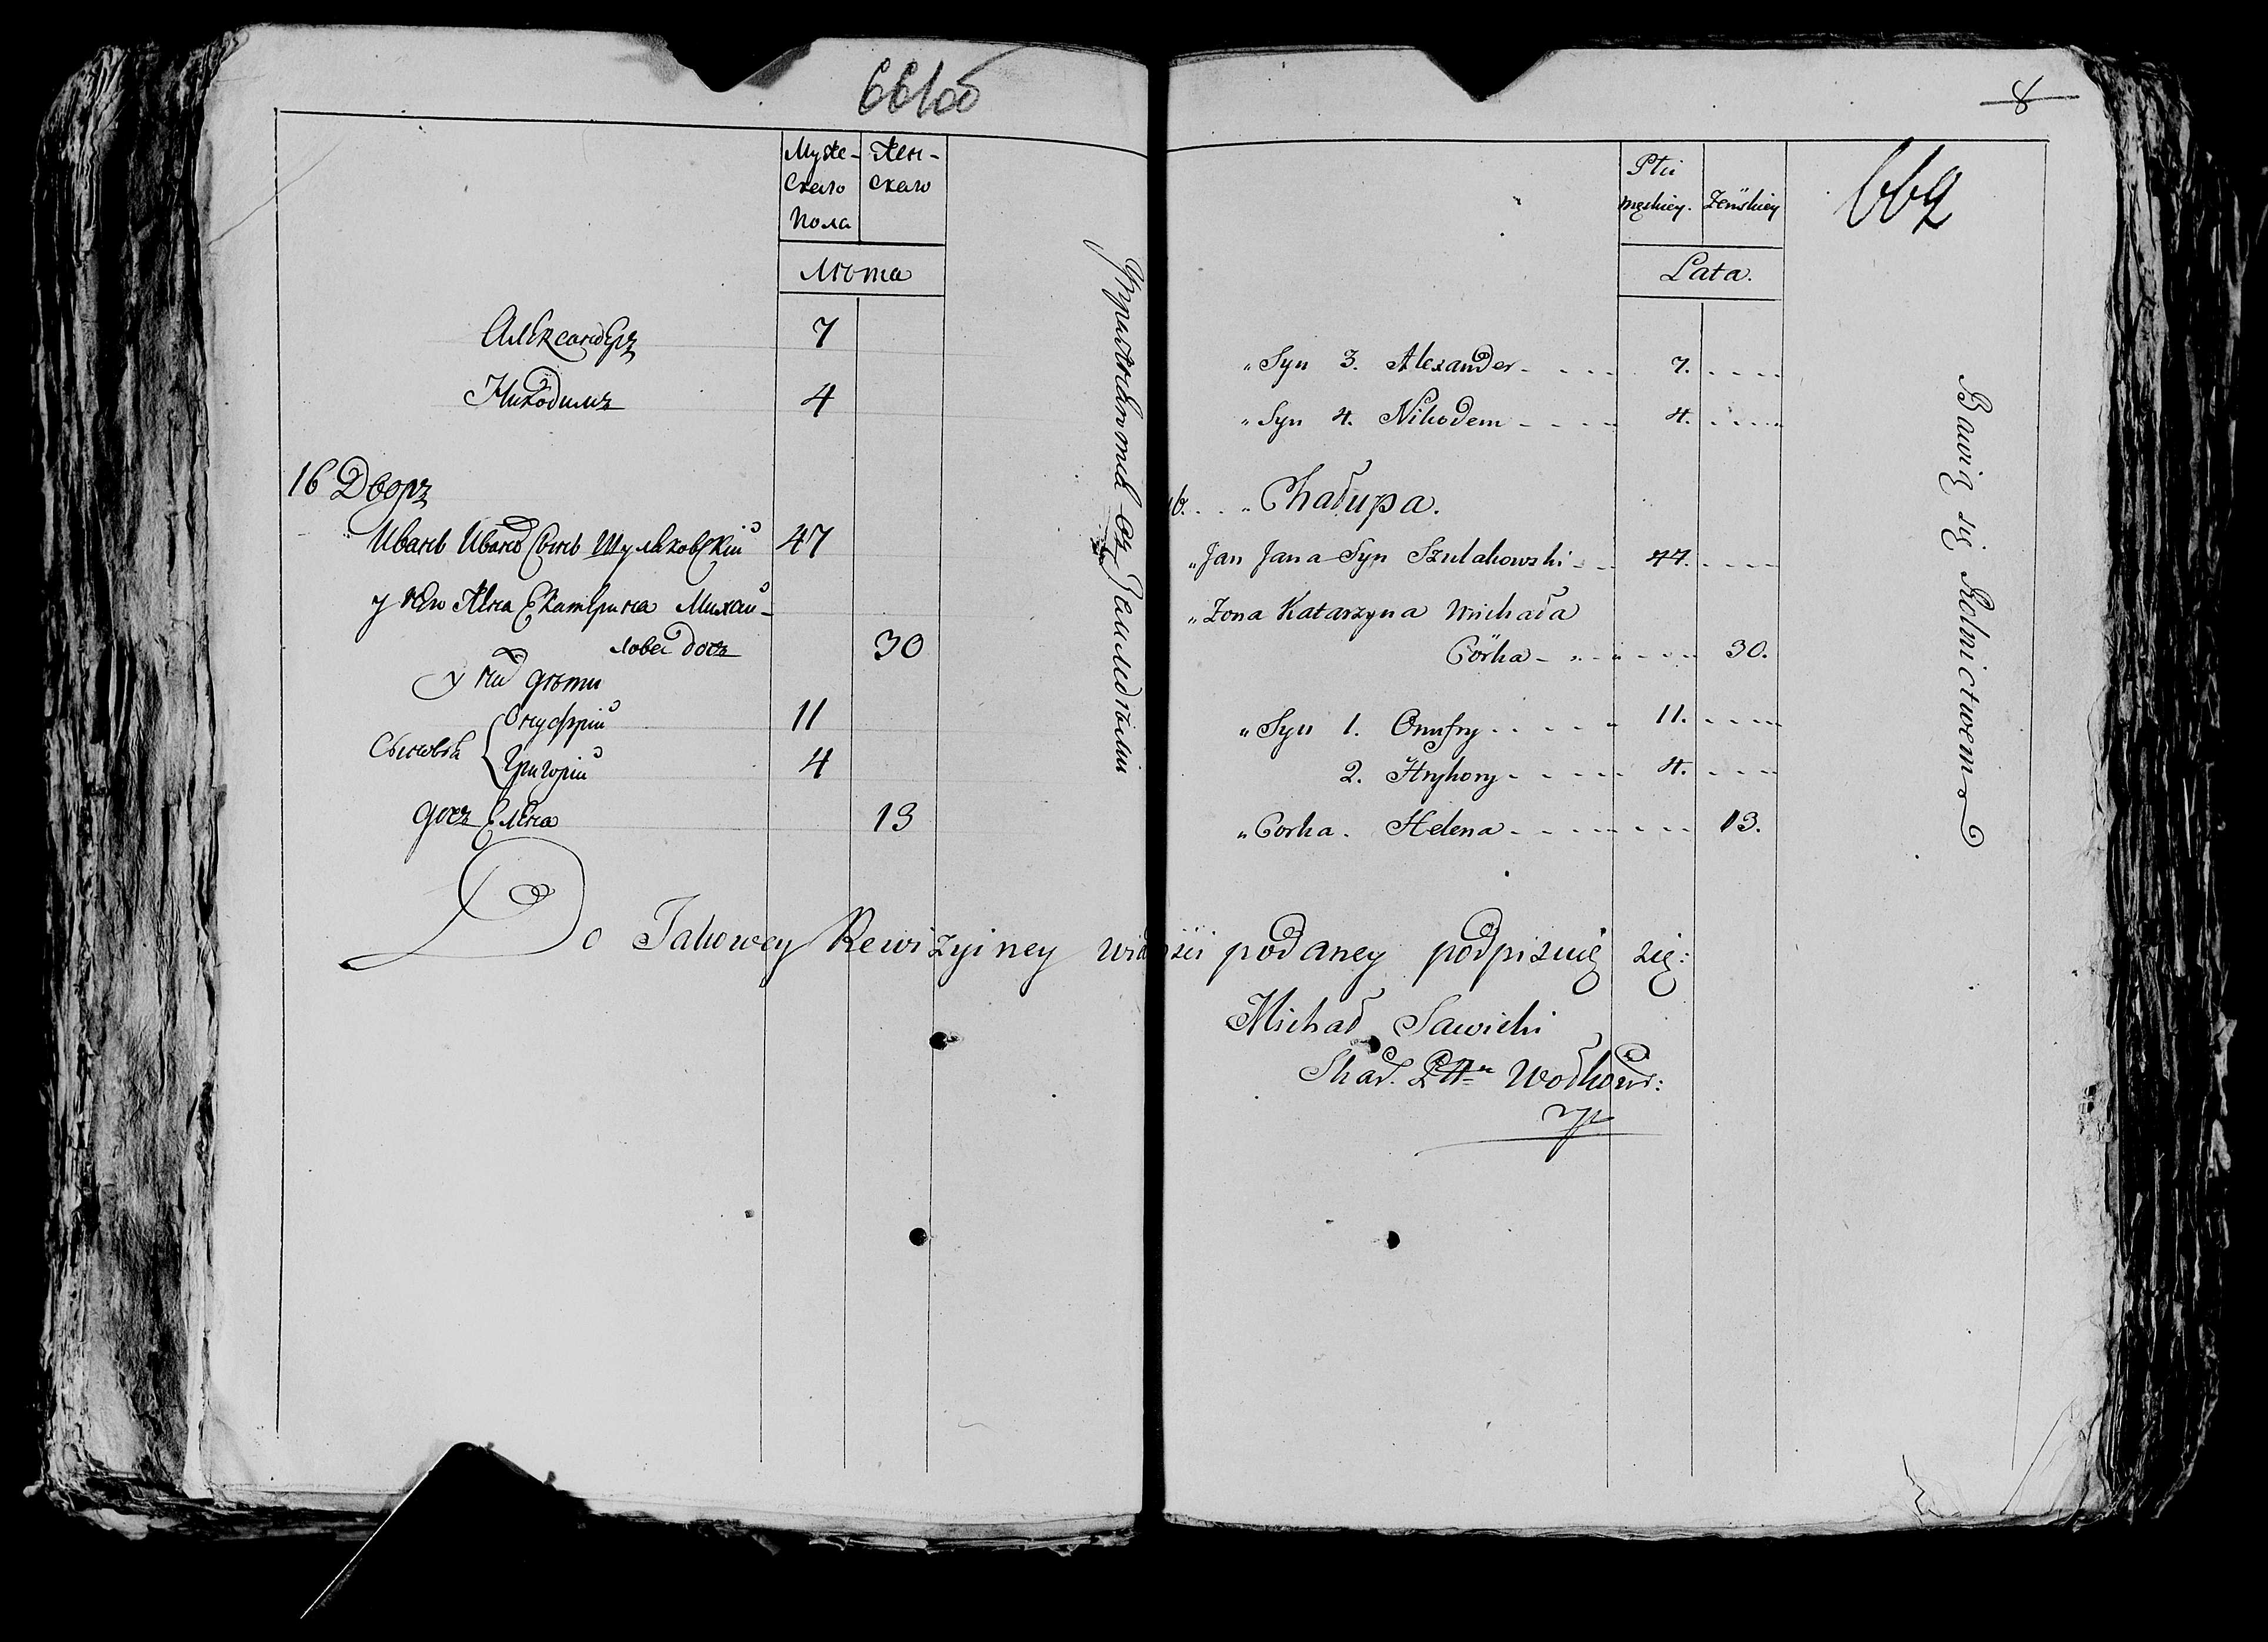 661об
Муже- Жен-
скаго скаго
пола
Лѣта
Александеръ 7
Никодимъ 4
16 Дворъ
Иванъ Ивановъ Сынъ Шуляковскій 47
у него Жена Екатерина Михай-
лова дочь 30
у нихъ дѣти
Сыновья Онуфрій 11
Григорій 4
дочь Елена 13
Упражняются Земледѣлiемъ
8
662
Płci
męskiey. żeńskiey
Lata.
„ Syn 3. Alexander - - - - 7. - - - -
„ Syn 4. Nikodem - - - - 4. - - - -
16. . . „ Chałupa.
„ Jan Jana Syn Szulakowski - - 47. - - - -
„ Żona Katarzyna Michała
Córka - - - - - - 30.
„ Syn 1. Onufry - - - - - 11. - - - -
2. Hryhory - - - - - 4. - - - -
„ Corka. Helena - - - - - - - 13.
Bawią się Rolnictwem
Do Takowey Rewizyiney podaney podpisuię się:
Michał Sawicki